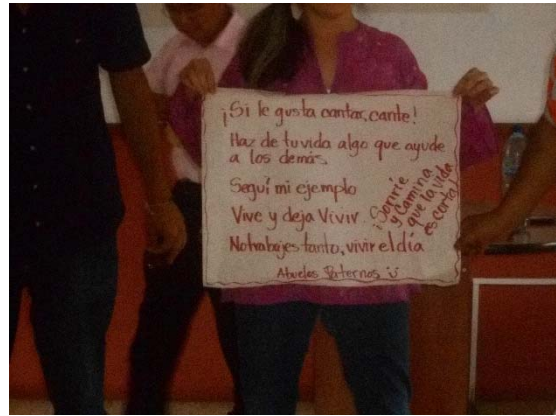 ¡Si le gusta cantar, cante!
Haz de tu vida algo que ayude
a los demás.
Seguí mi ejemplo
Vive y deja Vivir
No trabajes tanto, vivir el día
¡Sonríe
y Camina
que la vida
es corta!
Abuelos Paternos